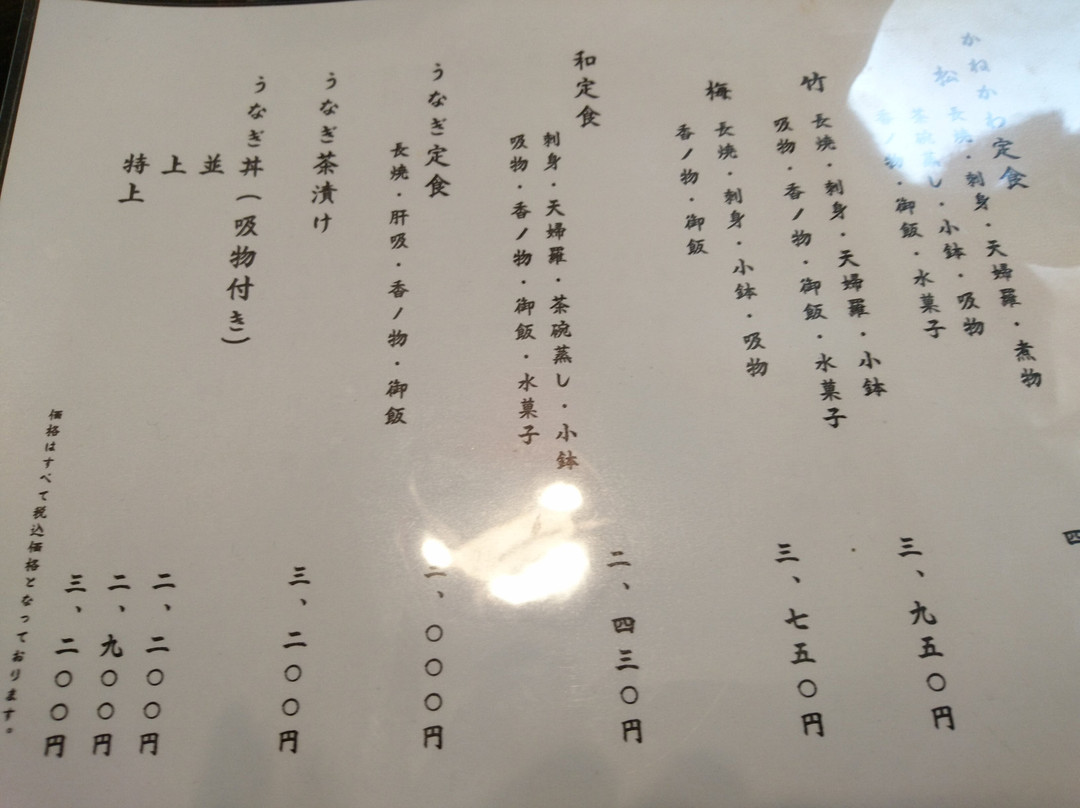 かねかわ定食
松
長焼・刺身・天婦羅・煮物
茶碗蒸し・小鉢・吸物
香ノ物・御飯・水菓子
四
竹
長焼・刺身・天婦羅・小鉢
吸物・香ノ物・御飯・水菓子
三、九五〇円
梅
長焼・刺身・小鉢・吸物
香ノ物・御飯
三、七五〇円
和定食
刺身・天婦羅・茶碗蒸し・小鉢
吸物・香ノ物・御飯・水菓子
二、四三〇円
うなぎ定食
長焼・肝吸・香ノ物・御飯
、〇〇〇円
うなぎ茶漬け
三、二〇〇円
うなぎ丼（吸物付き）
並
二、二〇〇円
上
二、九〇〇円
特上
三、二〇〇円
価格はすべて税込価格となっております。